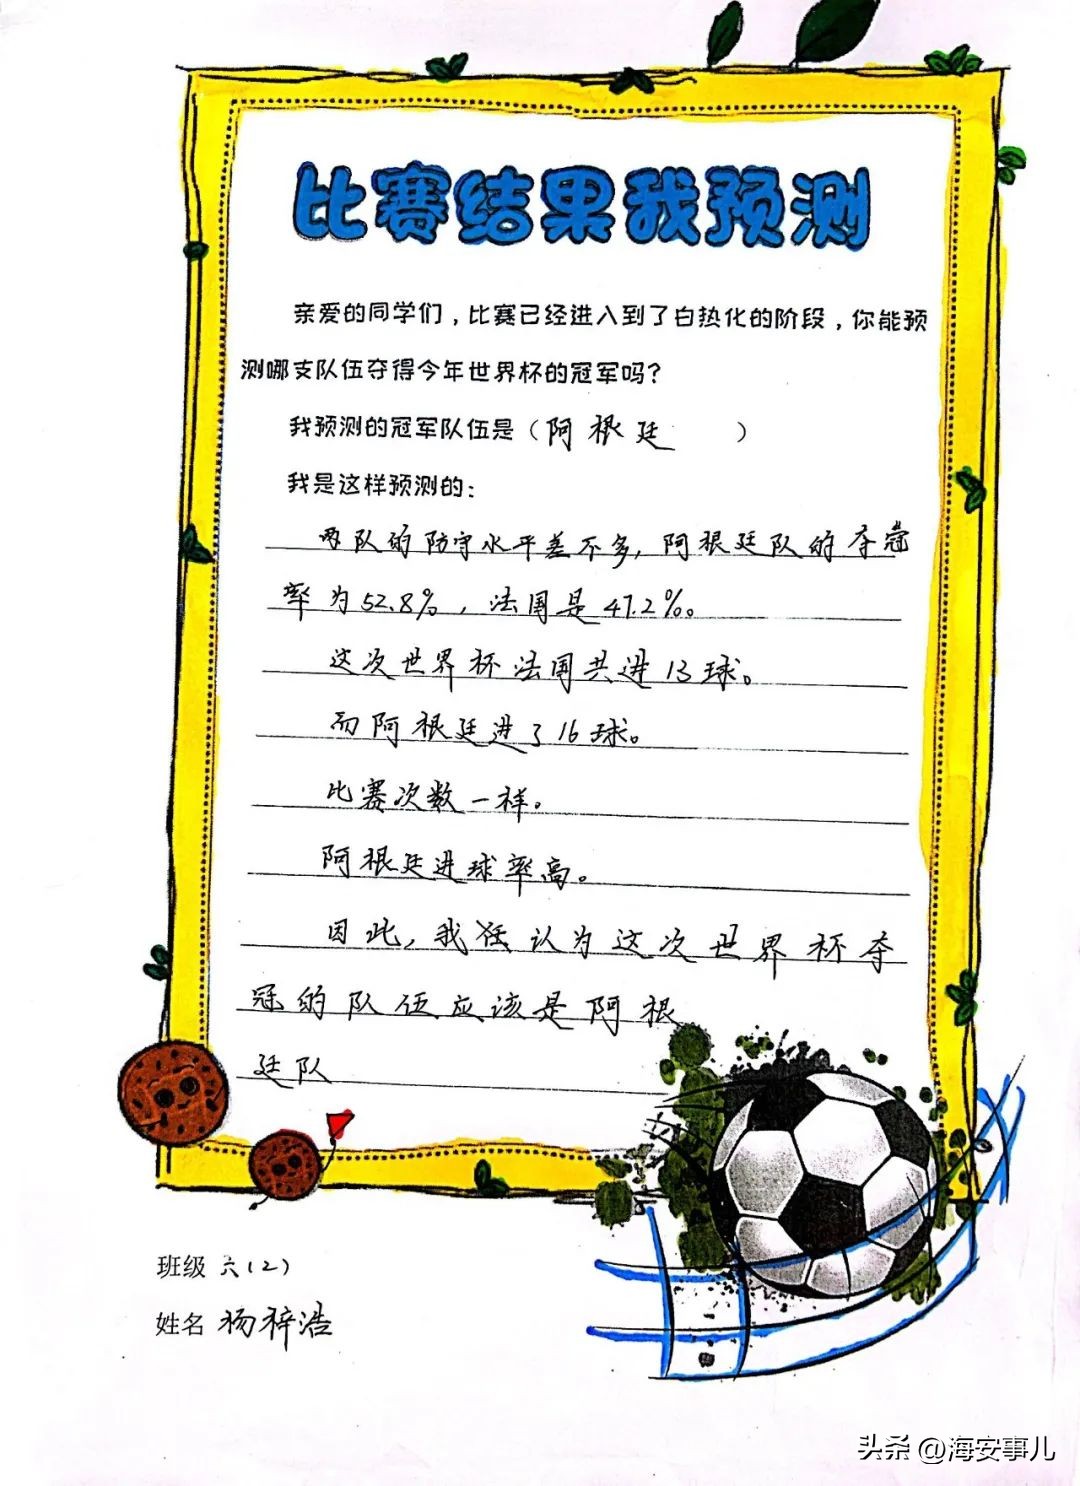 比赛结果我预测
亲爱的同学们，比赛已经进入到了白热化的阶段，你能预
测哪支队伍夺得今年世界杯的冠军吗？
我预测的冠军队伍是（阿根廷）
我是这样预测的：
两队的防守水平差不多，阿根廷队的夺冠
率为52.8%，法国是47.2%。
这次世界杯法国共进13球。
而阿根廷进了16球。
比赛次数一样。
阿根廷进球率高。
因此，我 认为这次世界杯夺
冠的队伍应该是阿根
廷队
班级 六(2)
姓名 杨梓浩
头条 @海安事儿